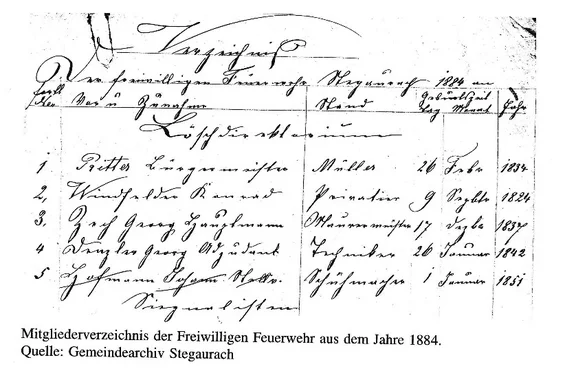 Verzeichniß
Der freiwilligen Feuerwehr Stegaurach 1884 an
Fortl. Nro Vor u Zunahme Stand Geburtszeit Tag Monat Jahr
Löschdirektorium
1 Ritter Bürgermeister Müller 26 Febr 1834
2, Windfelder Konrad Privatier 9 Septbr 1824
3, Zech Georg Hauptmann Maurermeister 17 Dezbr 1837
4 Denzler Georg Adjudant Techniker 26 Januar 1842
5 Hofmann Johann Stellv. Schuhmacher 1 Januar 1851
Signalisten
Mitgliederverzeichnis der Freiwilligen Feuerwehr aus dem Jahre 1884.
Quelle: Gemeindearchiv Stegaurach